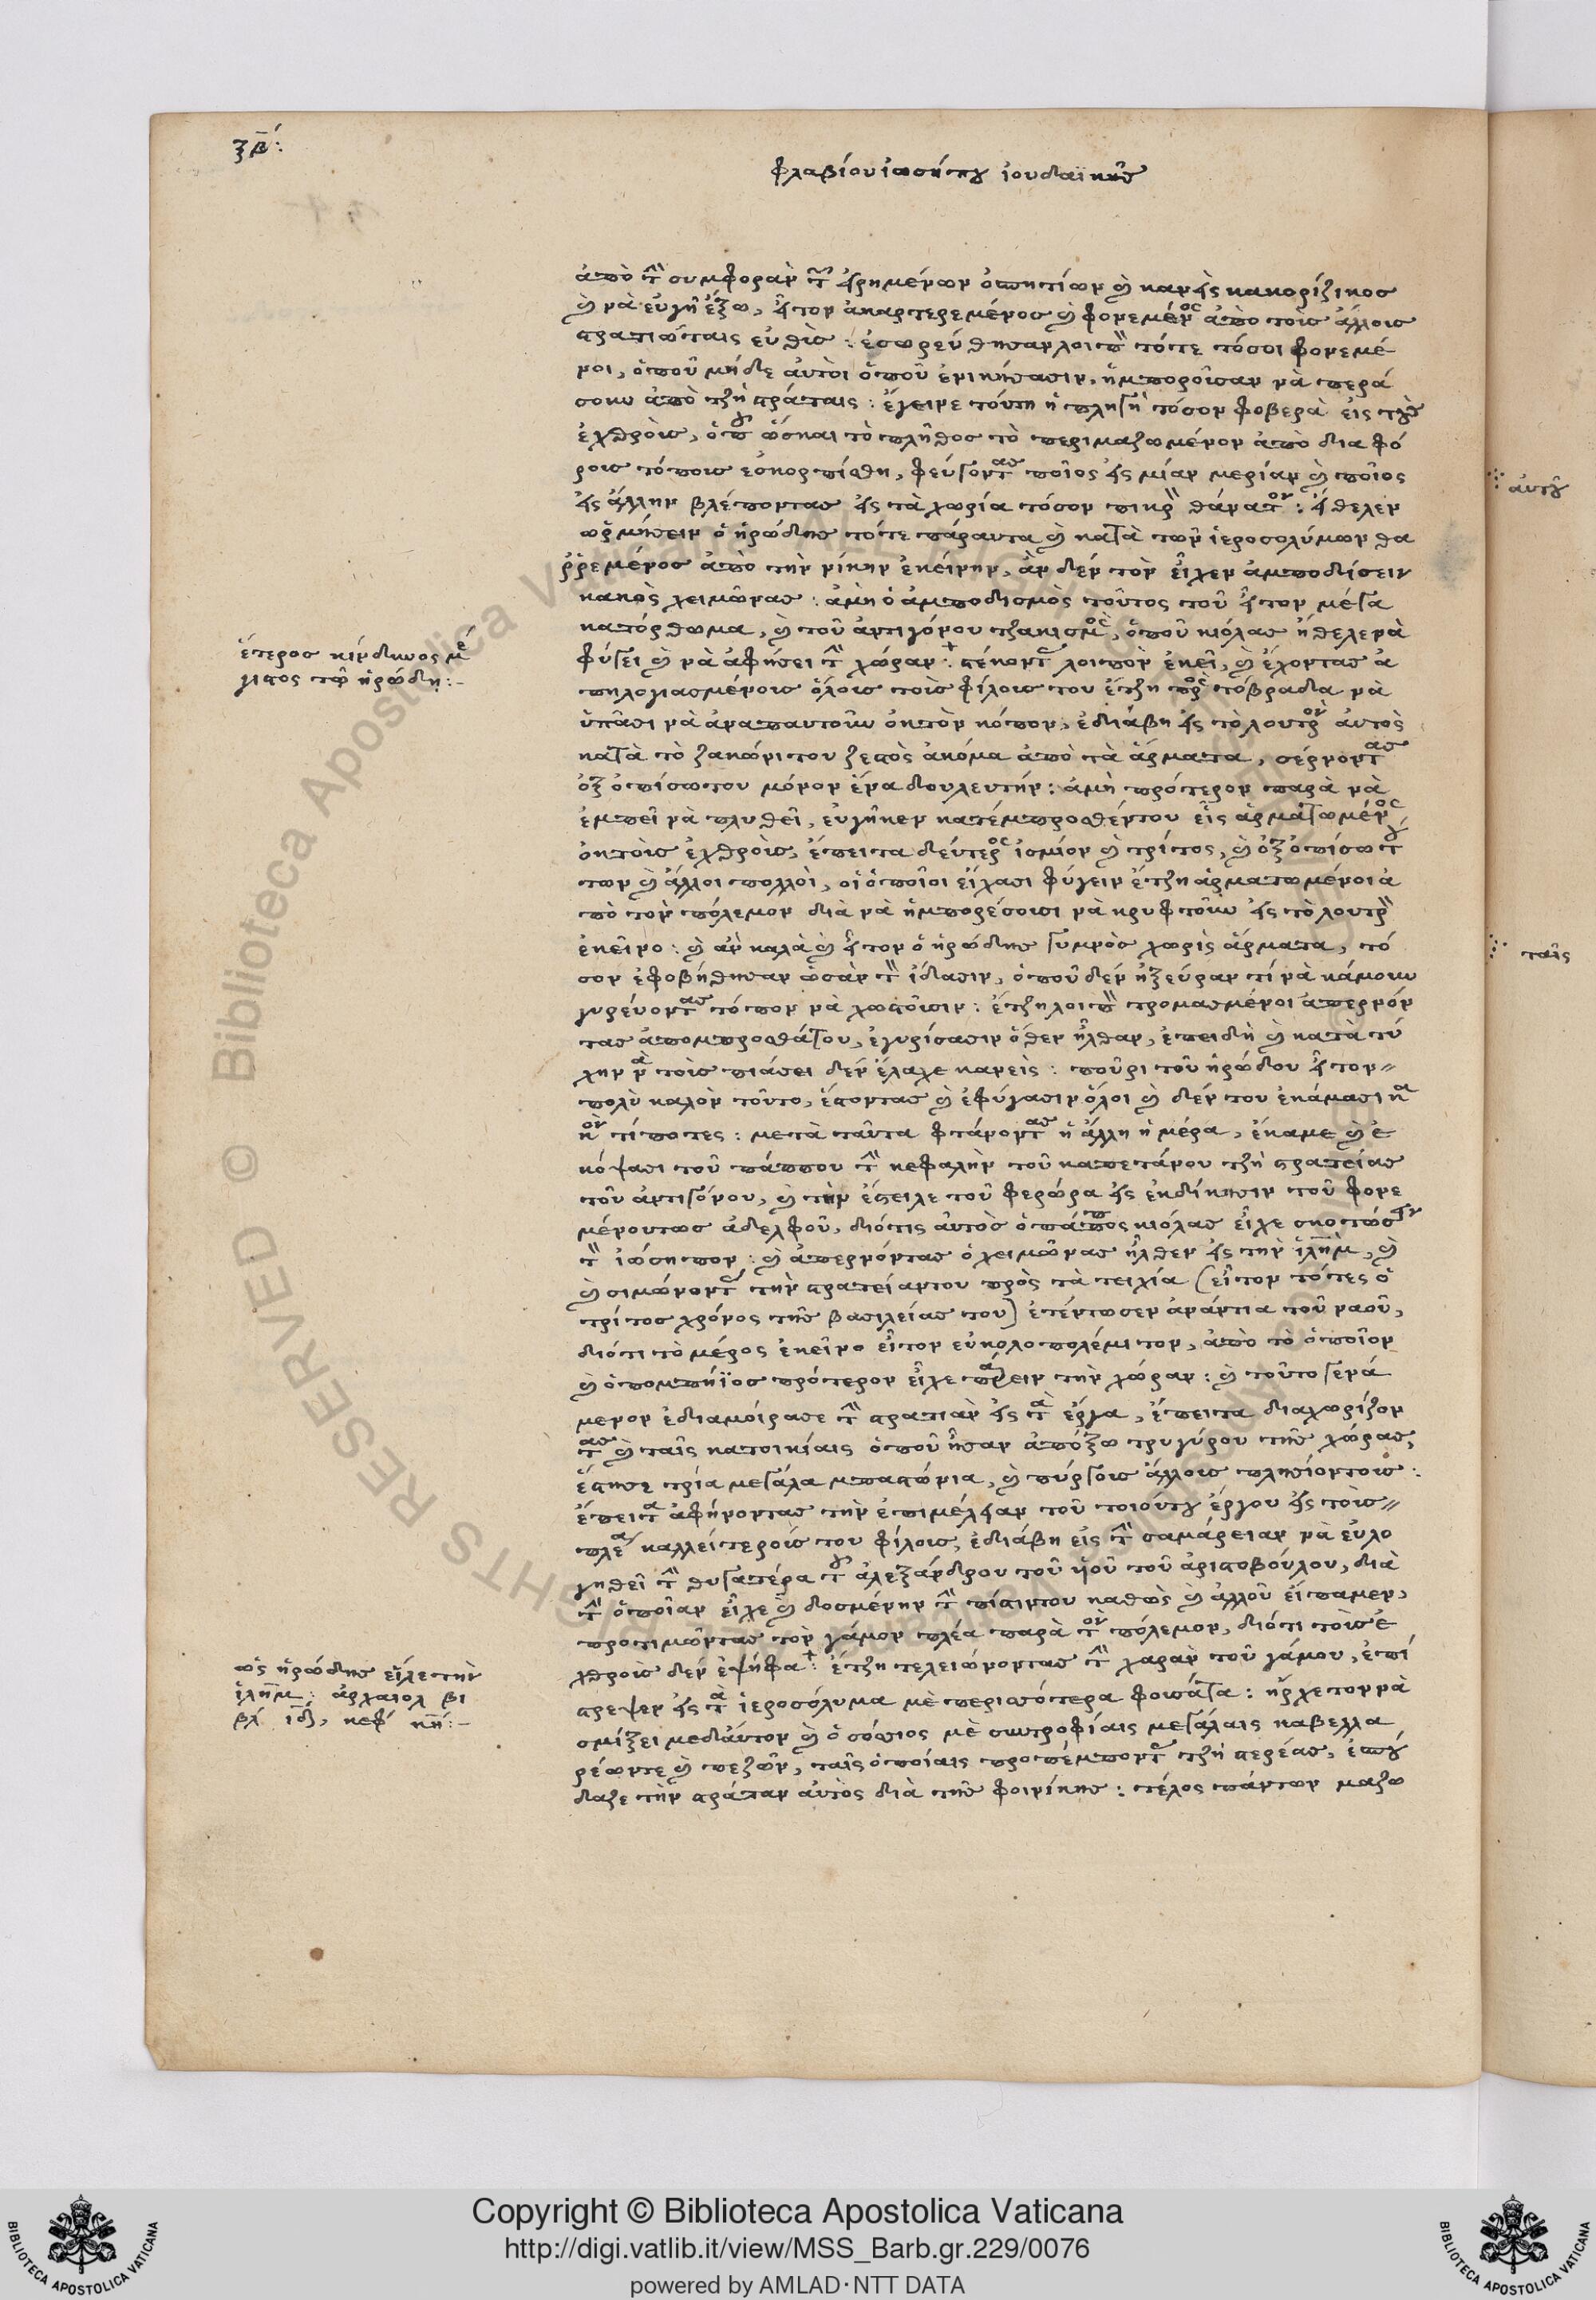 ξβ´:
φλαβίου ἰωσήπου ἰουδαϊκῆς
ἀπὸ τὴν συμφορὰν τῶν εἰρημένων ὁπητίων καὶ κανεὶς κακορίζικος
καὶ νὰ εὐγῆ ἔξω, ἦτον ἀκαρτερεμένος καὶ φονεμένος ἀπὸ τοὶς ἄλλοις
στρατιώταις εὐθὶς: ἐσωρεύθησαν λοιπὸν τότε τόσοι φονεμέ
νοι, ὁποῦ μήδε αὐτοὶ ὁποῦ ἐνικήσασιν, ἠμποροῖσαν νὰ περά
σουν ἀπὸ τζὴ στράταις: ἔγεινε τούτη ἡ πληγὴ τόσον φοβερὰ εἰς τοὺς
ἐχθροὶς, ὁποῦ ὅσηαι τὸ πλῆθος τὸ περιμαζωμένον ἀπὸ διαφό
ροις τόποις ἐσκορπίσθη, φεύγοντας ποῖος εἰς μίαν μερίαν καὶ ποῖος
εἰς ἄλλην βλέποντας εἰς τὰ χωρία τόσον πικρὸν θάνατον: ἤθελεν
ὡρμήσειν ὁ ἡρώδης τότε πάραυτα καὶ κατὰ τῶν ἱεροσολύμων θα
ῤῥεμένος ἀπὸ τὴν νίκην ἐκείνην, ἂν δὲν τὸν εἶχεν ἀμποδίσειν
κακὸς χειμῶνας: ἀμὴ ὁ ἀμποδισμὸς τοῦτος τοῦ ἦτον μέγα
κατόρθωμα, καὶ τοῦ ἀντιγόνου τζακισμὸς, ὁποῦ κιόλας ἤθελε νὰ
φύγει καὶ νὰ ἀφήσει τὴν χώραν: στέκοντας λοιπὸν ἐκεῖ, καὶ ἔχοντας ἀ
πηλογιασμένοις ὅλοις τοὶς φίλοις του ἔτζη πρὸς τὸ βραδία νὰ
ὑπᾶσι νὰ ἀναπαυτοῦν ἐκ τὸν κόπον, ἐδιάβη εἰς τὸ λουτρὸν αὐτὸς
κατὰ τὸ ζακώνι του ζεστὸς ἀκόμα ἀπὸ τὰ ἅρματα, σέρνοντας
ἐξ ὀπίσω του μόνον ἕνα δουλευτήν: ἀμὴ πρότερον παρὰ νὰ
ἐμπεῖ νὰ πλυθεῖ, εὐγῆκεν κατέμπροσθέν του εἷς ἁρματωμένος
ἐκ τοὶς ἐχθροὶς, ἔπειτα δεύτερος ἰσμίον καὶ τρίτος, καὶ ἐξ ὀπίσω του
των καὶ ἄλλοι πολλοὶ, οἱ ὁποῖοι εἴχασι φύγειν ἔτζη ἁρματωμένοι ἀ
πὸ τὸν πόλεμον διὰ νὰ ἠμπορέσουσι νὰ κρυφτοῦν εἰς τὸ λουτρὸν
ἐκεῖνο: καὶ ἂν καλὰ καὶ ἦτον ὁ ἡρώδης γυμνὸς χωρὶς ἅρματα, τό
σον ἐφοβήθησαν ὡσὰν τὸν ἴδασιν, ὁποῦ δὲν ἠξεύραν τί νὰ κάμουν
γυρεύοντας τόπον νὰ χωστοῦσιν: ἔτζη λοιπὸν τρομασμένοι ἀπερνόν
τας ἀπομπροσθάτου, ἐγυρίσασιν ὅθεν ἦλθαν, ἐπειδὴ καὶ κατὰ τύ
χην νὰ τοὶς πιάσει δὲν ἔλαχε κανεὶς: ποῦρι τοῦ ἡρώδου ἦτον
πολὺ καλὸν τοῦτο, ἔστοντας καὶ ἐφύγασιν ὅλοι καὶ δὲν του ἐκάμασι κα
κὸν τίποτες: μετὰ ταῦτα φτάνοντας ἡ ἄλλη ἡμέρα, ἔκαμε καὶ ἐ
κόψασι τοῦ πάππου τὴν κεφαλὴν τοῦ καπετάνου τζὴ στρατείας
τοῦ ἀντιγόνου, καὶ τὴν ἔστειλε τοῦ φερώρα εἰς ἐκδίκησιν τοῦ φονε
μένου τως ἀδελφοῦ, διότις αὐτὸς ὁ πάππος κιόλας εἶχε σκοτώσειν
τὸν ἰώσηπον: καὶ ἀπερνόντας ὁ χειμῶνας ἦλθεν εἰς τὴν ἱλημ, καὶ
καὶ σιμώνοντας τὴν στρατείαν του πρὸς τὰ τειχία (εἶτον τότες ὁ
τρίτος χρόνος τῆς βασιλείας του) ἐτέντωσεν ἀνάντια τοῦ ναοῦ,
διότι τὸ μέρος ἐκεῖνο εἶτον εὐκολοπολέμιτον, ἀπὸ τὸ ὁποῖον
καὶ ὁ πομπήϊος πρότερον εἶχε πάρειν τὴν χώραν: καὶ τοῦτο γενά
μενον ἐδιαμοίρασε τὴν στρατιὰν εἰς τὰ ἔργα, ἔπειτα διαχωρίζον
τας καὶ ταῖς κατοικίαις ὁποῦ ἦσαν ἀπόξω τρυγύρου τῆς χώρας,
ἔστησε τρία μεγάλα μπαστιώνια, καὶ πύργοις ἄλλοις πλησίον τοις:
ἔπειτα ἀφήνοντας τὴν ἐπιμέλειαν τοῦ τοιούτου ἔργου εἰς τοὶς
πλέα καλλείτεροίς του φίλοις, ἐδιάβη εἰς τὴν σαμάρειαν νὰ εὐλο
γηθεῖ τὴν θυγατέρα τοῦ ἀλεξάνδρου τοῦ ὑιοῦ τοῦ ἀριστοβούλου, διὰ
τὴν ὁποίαν εἶχε καὶ δοσμένην τὴν πίστιν του καθὼς καὶ ἀλλοῦ εἴπαμεν,
προτιμῶντας τὸν γάμον πλέα παρὰ τὸν πόλεμον, διότι τοὶς ἐ
χθροὶς δὲν ἐψήφα: ἔτζη τελειώνοντας τὴν χαρὰν τοῦ γάμου, ἐπί
στρεψεν εἰς τὰ ἱεροσόλυμα μὲ περισσότερα φουσάτα: ἤρχετον νὰ
σμίξει μεδαύτον καὶ ὁ σόσιος μὲ συντροφίαις μεγάλαις καβελλα
ρέων τε καὶ πεζῶν, ταῖς ὁποίαις προπέμποντας τζὴ στερέας, ἐσπού
δαζε τὴν στράταν αὐτὸς διὰ τῆς φοινίκης: τέλος πάντων μαζω
ἕτερος κίνδηνος μέ
γιστος τῷ ἡρώδῃ:-
ὡς ἡρώδης εἷλε τὴν
ἱλημ: ἀρχαιολ βι
βλ ιδ, κεφ κη:-
αὐτοῦ
ταῖς
© Biblioteca Apostolica Vaticana ALL RIGHTS RESERVED
Copyright © Biblioteca Apostolica Vaticana
http://digi.vatlib.it/view/MSS_Barb.gr.229/0076
powered by AMLAD·NTT DATA
BIBLIOTECA APOSTOLICA VATICANA
BIBLIOTECA APOSTOLICA VATICANA